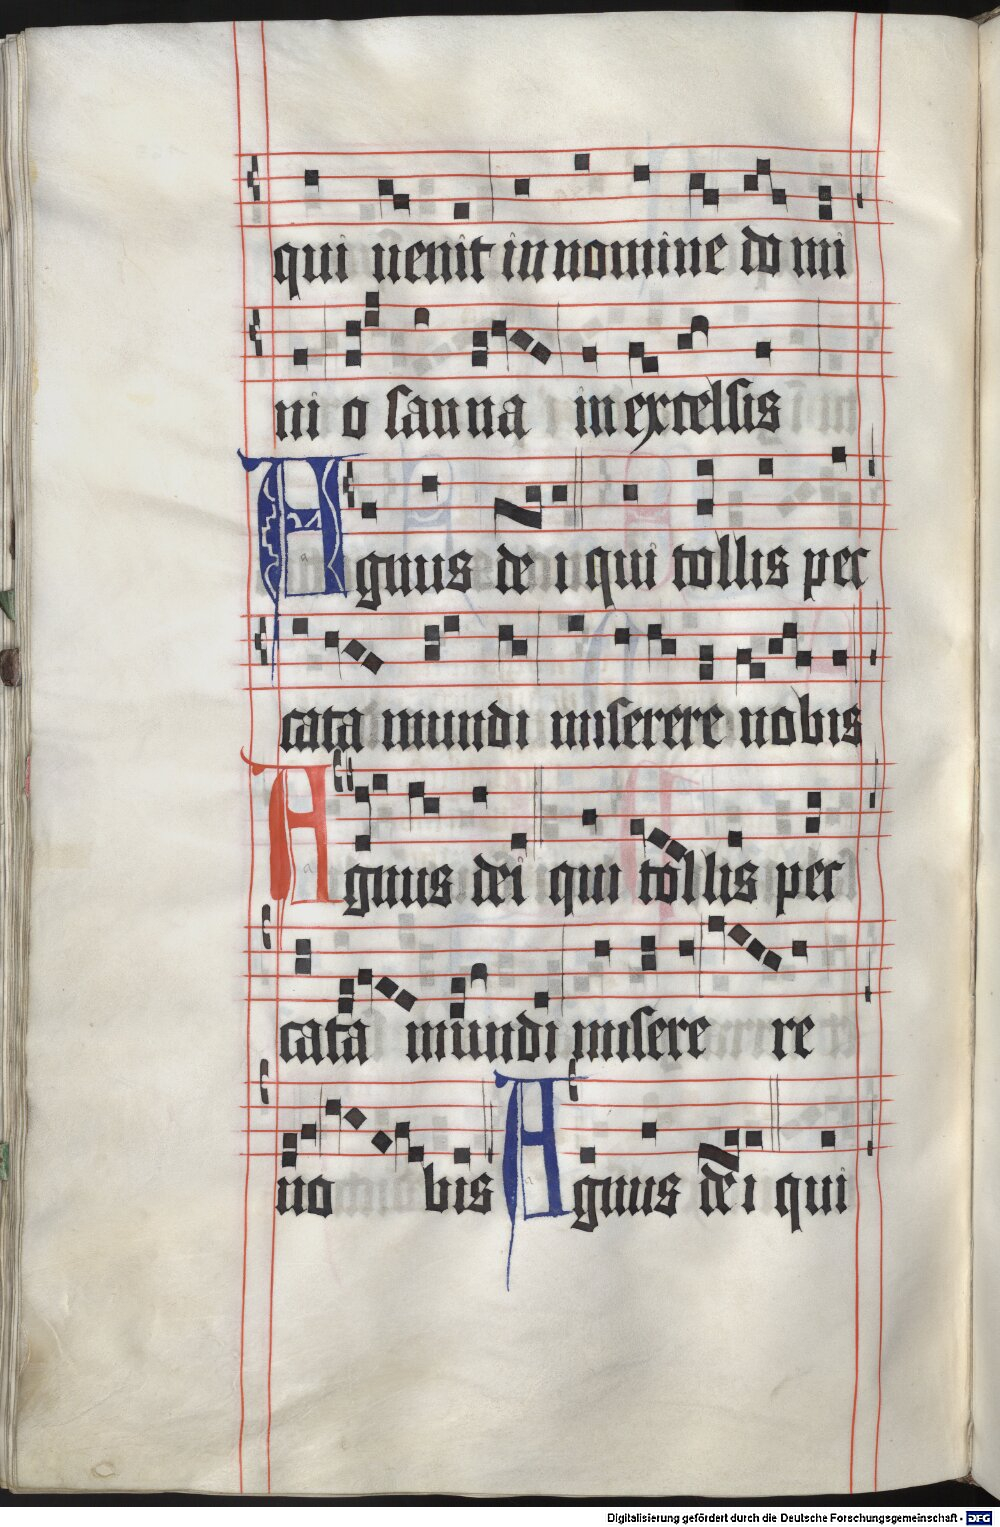 qui uenit in nomine do mi
ni o sanna in excelsis
Agnus de i qui tollis pec
cata mundi miserere nobis
Agnus dei qui tollis pec
cata mundi misere re
no bis Agnus de i qui
Digitalisierung gefördert durch die Deutsche Forschungsgemeinschaft - DFG